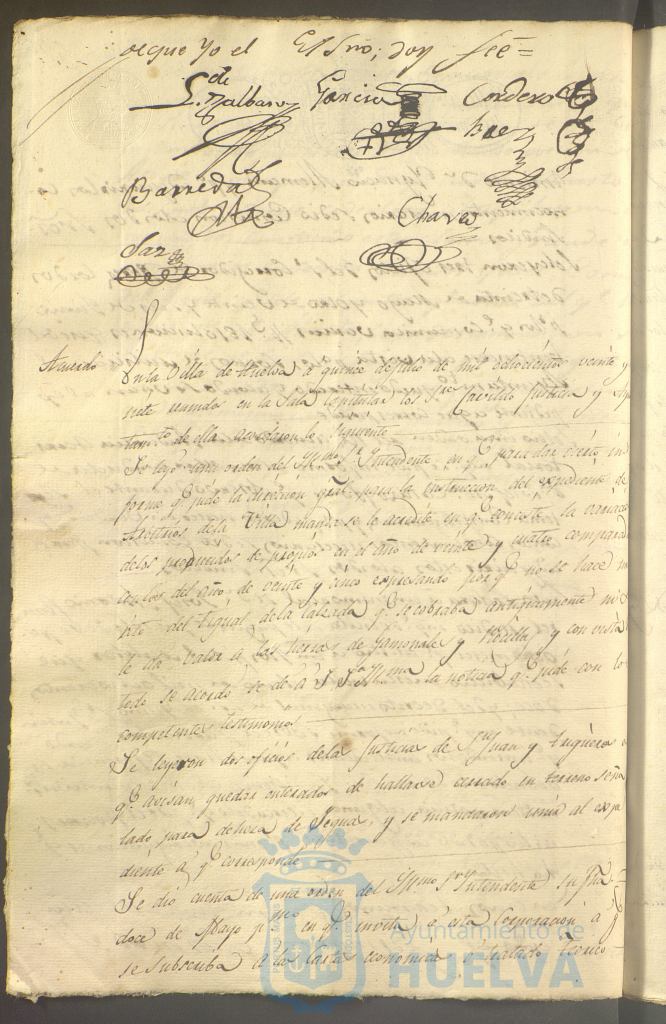 de que yo el Essno; doy feé=
L.do Malbar García Cordero
Baez
Barreda
Chavez
Saz
Acuerdo
En la Villa de Huelva à quince de Julio de mil ochocientos veinte y
siete reunidos en la Sala Capitular los S.res Cavildo Justicia y Ayu
tam.to de ella acordaron lo siguiente
Se leyó una orden del Yllmo S.r Yntendente, en q.e para dar cierto in
forme q.e pide la direccion gral para la instruccion del expediente de
Arvitrios de la Villa manda se le acredite en q.e consiste la
delos productos de propios en el año de veinte y cuatro comparado
con los del año de veinte y cinco expresando por q.e no se hace
del de la Calzada q.e se cobraba antiguamente ni
le da valor à las tierras de y y con vista
todo se acordó se dé à S.S.a Yllma la noticia q.e pide con lo
competente testimonio
Se leyeron dos oficios dela Justicia de S.n Juan y Trigueros
q.e avisan quedar enterados de hallarse cerrado en terreno seña
lado para dehesa de Yeguas, y se mandaron unir al expe
diente à q.e corresponde
Se dió cuenta de una orden del Yllmo S.or Yntendente su fha
doce de Mayo p.mo en q.e invita à esta Corporacion à q.e
se subscriba à la Carta economica
Ayuntamiento de
HUELVA